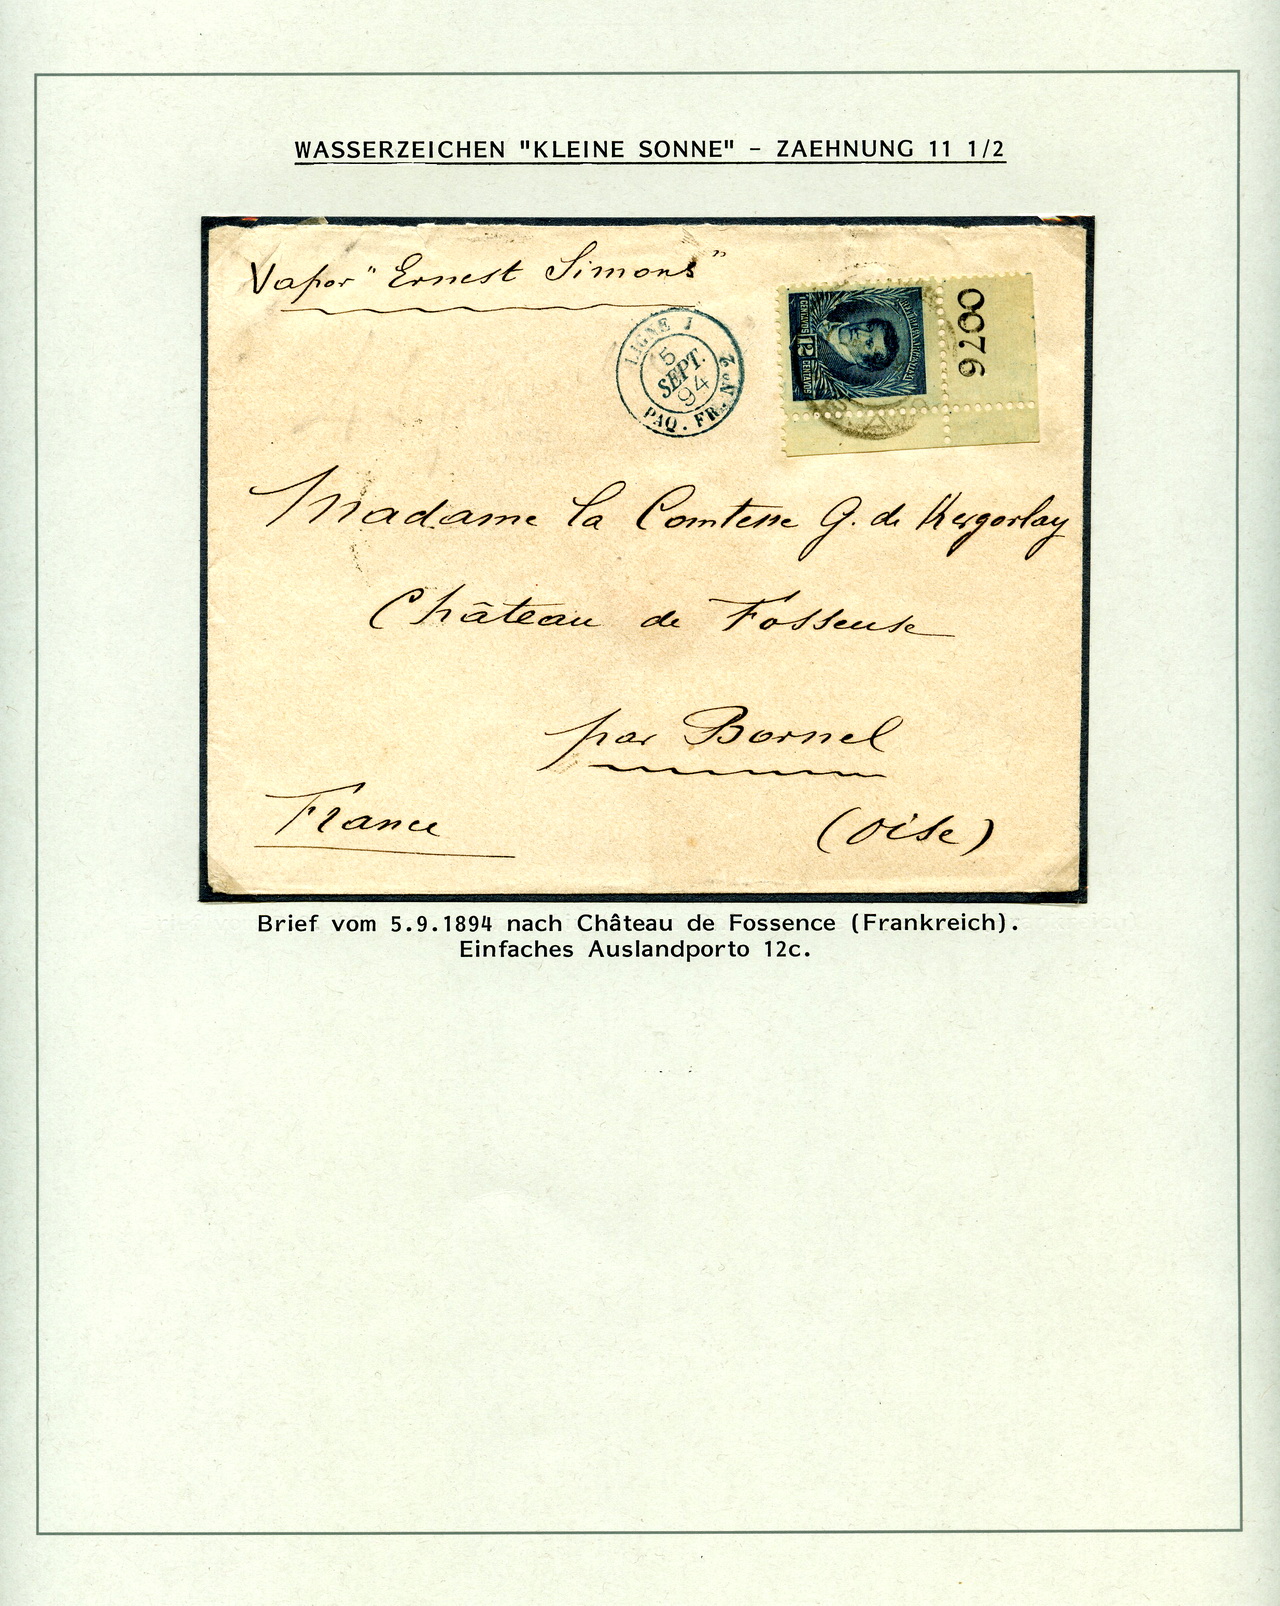 WASSERZEICHEN "KLEINE SONNE" - ZAEHNUNG 11 1/2
Vapor "Ernest Simons"
LIGNE J
5
SEPT.
94
PAQ. FR. Nº 2
12
CENTAVOS
CENTAVOS
0076
Madame la Comtesse G. de Kergorlay
Château de Fosseuse
par Bornel
France
(Oise)
Brief vom 5.9.1894 nach Château de Fossence (Frankreich).
Einfaches Auslandporto 12c.